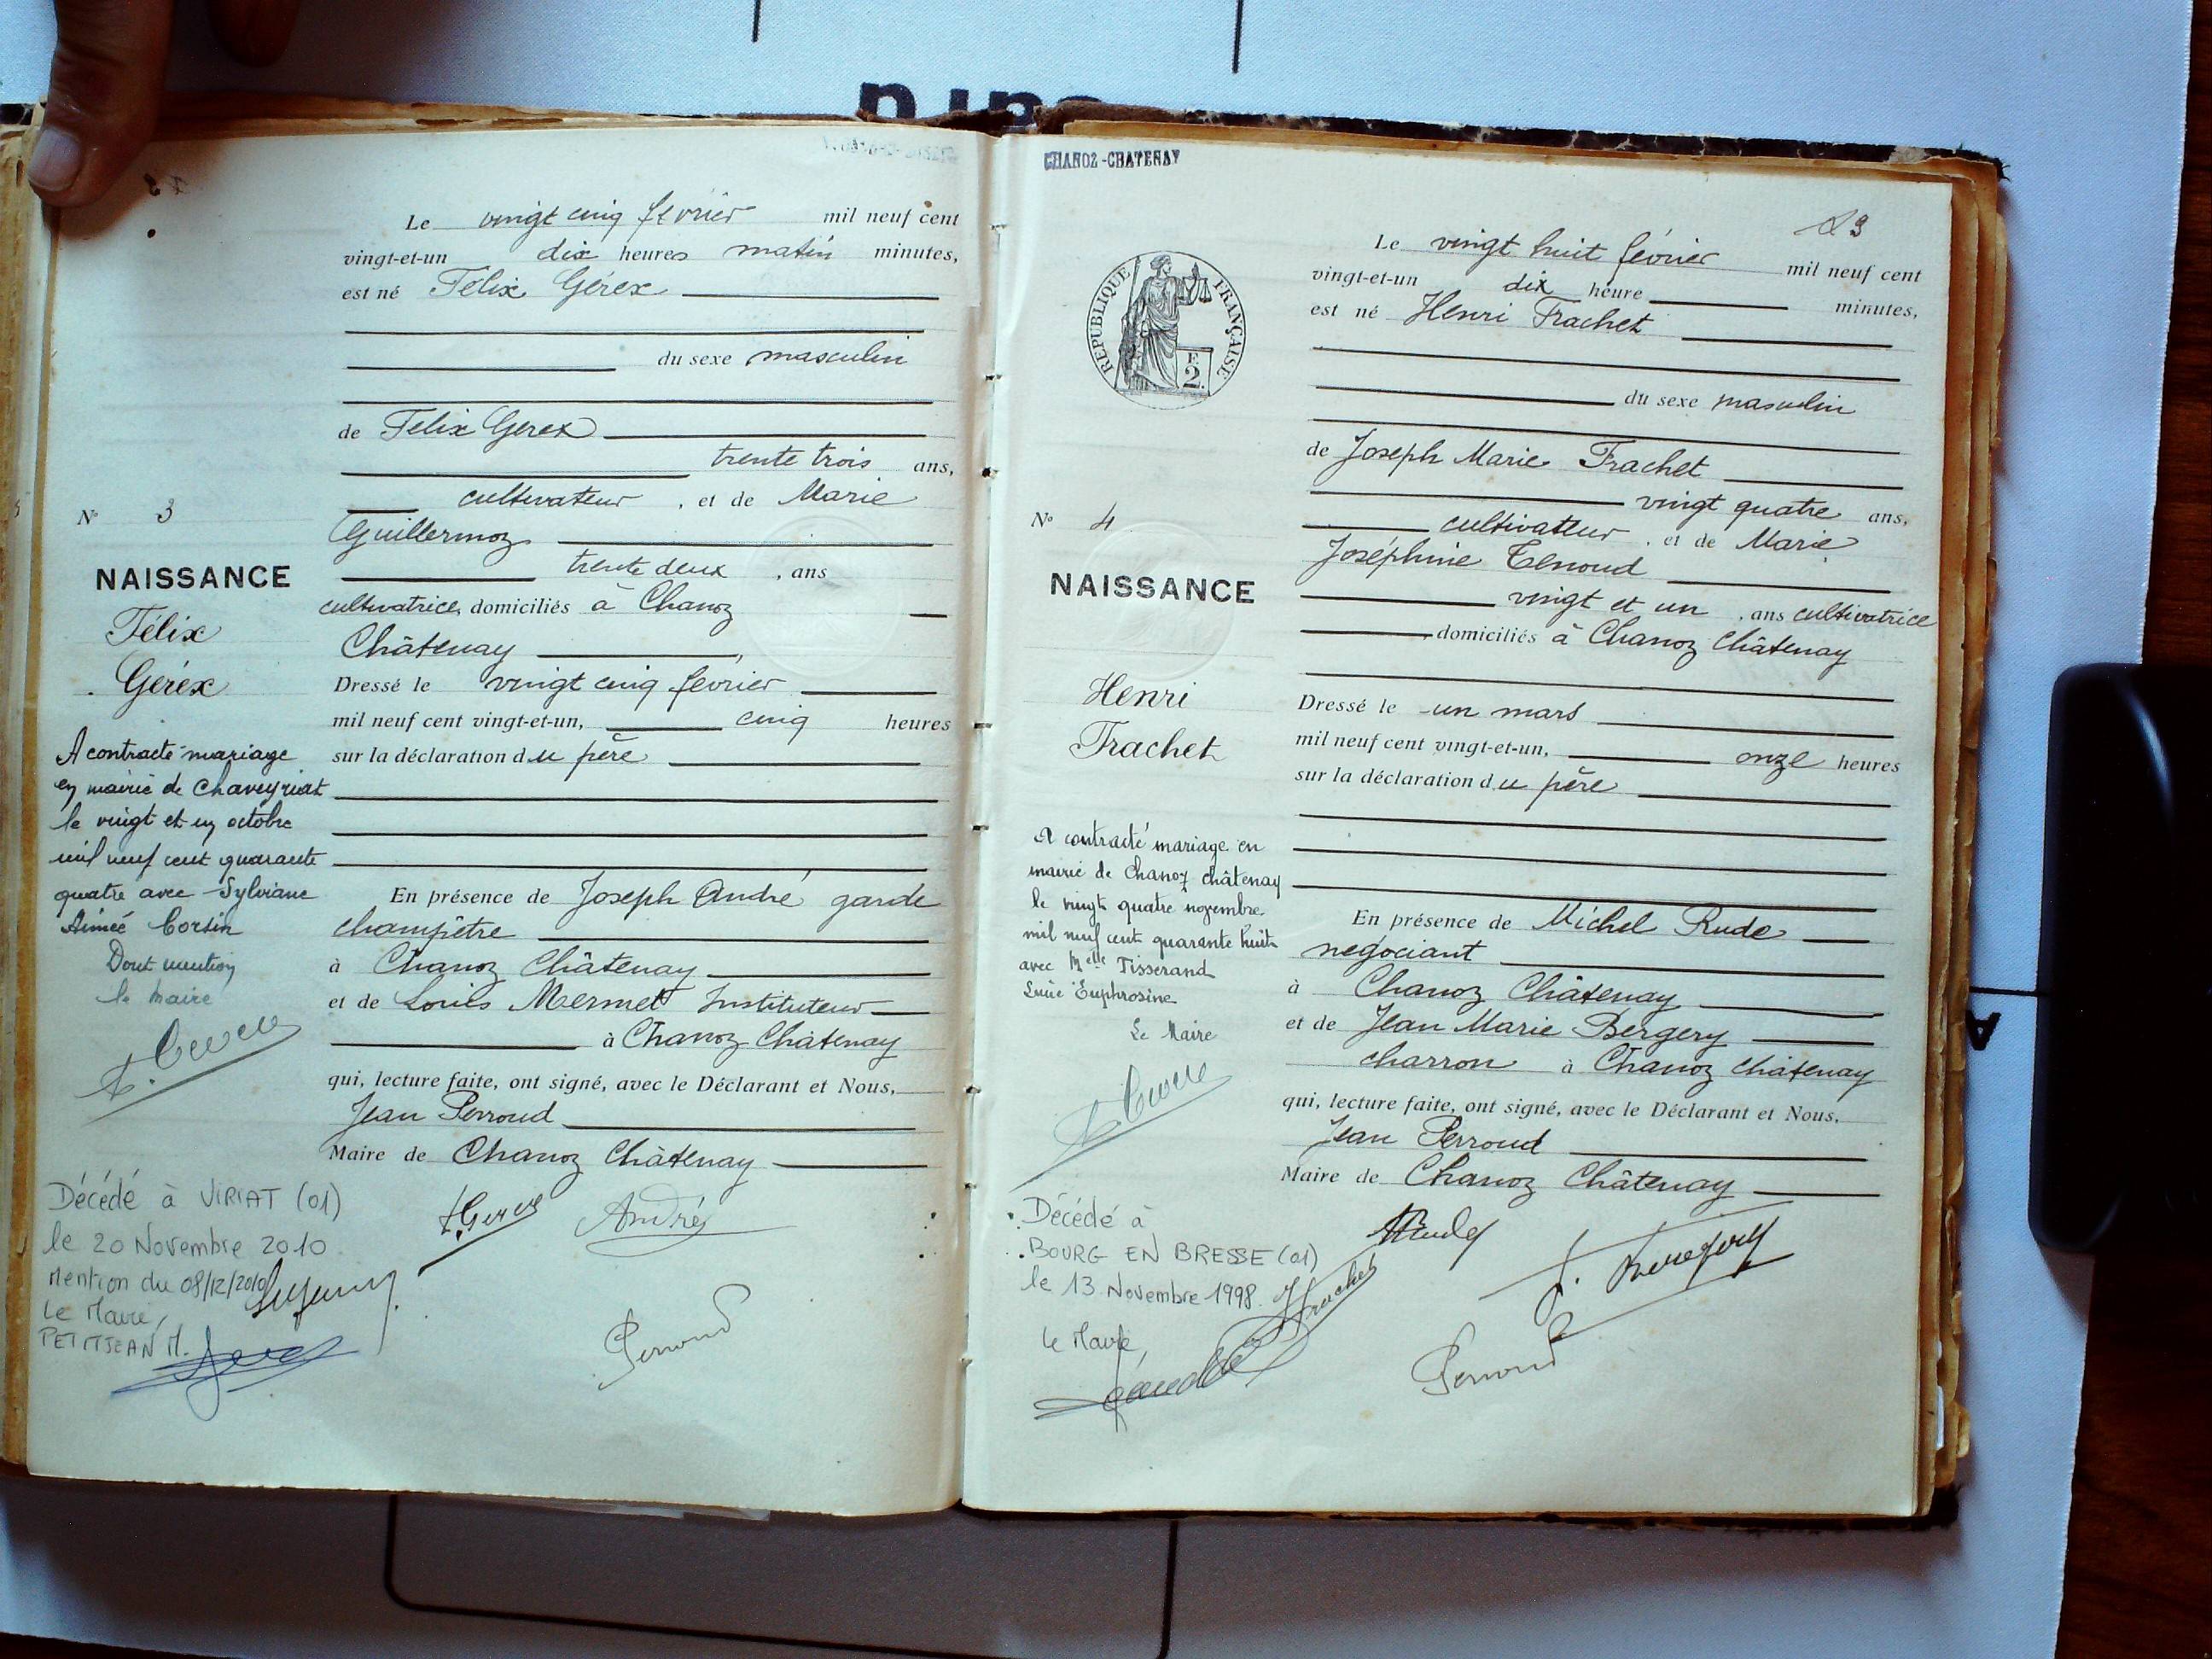 Le vingt cinq février mil neuf cent
vingt-et-un dix heures matin minutes,
est né Félix Gérex
du sexe masculin
de Félix Gerex
trente trois ans,
cultivateur, et de Marie
Guillermoz
trente deux, ans
cultivatrice, domiciliés à Chanoz
Châtenay
Dressé le vingt cinq février
mil neuf cent vingt-et-un, cinq heures
sur la déclaration du père
En présence de Joseph André garde
champêtre
à Chanoz Châtenay
et de Louis Mermet Instituteur
à Chanoz Châtenay
qui, lecture faite, ont signé, avec le Déclarant et Nous,
Jean Perroud
Maire de Chanoz Châtenay
André
Perroud
N° 3
NAISSANCE
Félix
Gérex
A contracté mariage
en mairie de Chaveyriat
le vingt et un octobre
mil neuf cent quarante
quatre avec Sylviane
Aimée Corsin
Dont mention
le maire
Décédé à VIRIAT (01)
le 20 Novembre 2010
Mention du 08/12/2010
Le Maire,
PETITJEAN M.
CHANOZ-CHATENAY
Le vingt huit février mil neuf cent
vingt-et-un dix heure minutes,
est né Henri Trachet
du sexe masculin
de Joseph Marie Trachet
vingt quatre ans,
cultivateur, et de Marie
Joséphine Tenoud
vingt et un, ans cultivatrice
domiciliés à Chanoz Châtenay
Dressé le un mars
mil neuf cent vingt-et-un, onze heures
sur la déclaration du père
En présence de Michel Rude
négociant
à Chanoz Châtenay
et de Jean Marie Bergery
charron à Chanoz Châtenay
qui, lecture faite, ont signé, avec le Déclarant et Nous,
Jean Perroud
Maire de Chanoz Châtenay
Perroud
RÉPUBLIQUE FRANÇAISE
F.
2.
N° 4
NAISSANCE
Henri
Trachet
A contracté mariage en
mairie de Chanoz châtenay
le vingt quatre novembre
mil neuf cent quarante huit
avec Melle Tisserand
Lucie Euphrosine
Le Maire
Décédé à
BOURG EN BRESSE (01)
le 13 Novembre 1998.
Le Maire,